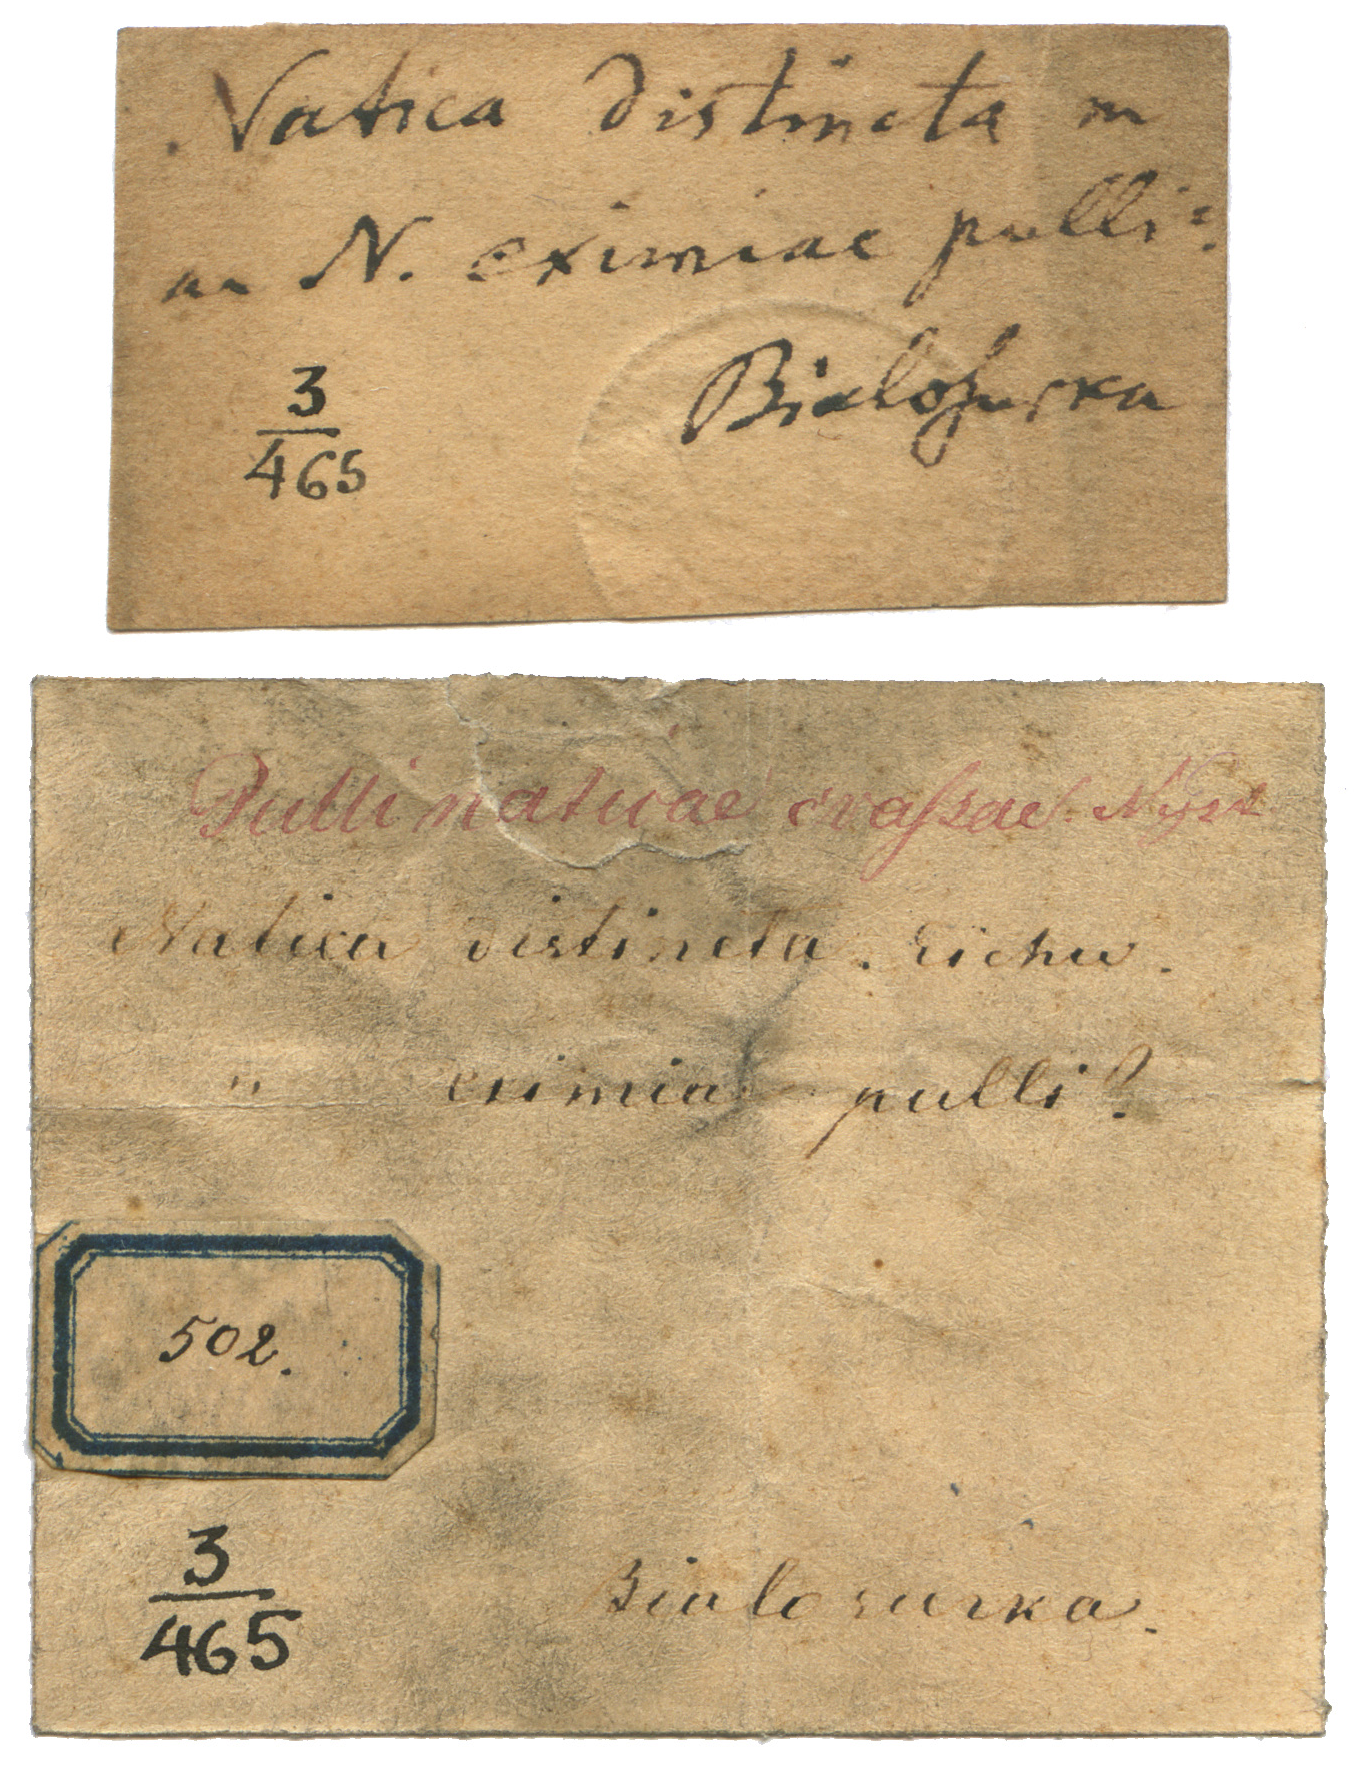 Natica distincta m
an N. eximiae pulli?
Bialozurka
3
465
Pulli naticae crassae. Nyst
Natica distincta. Eichw.
" eximia pulli?
502.
3
465
Bialozurka.